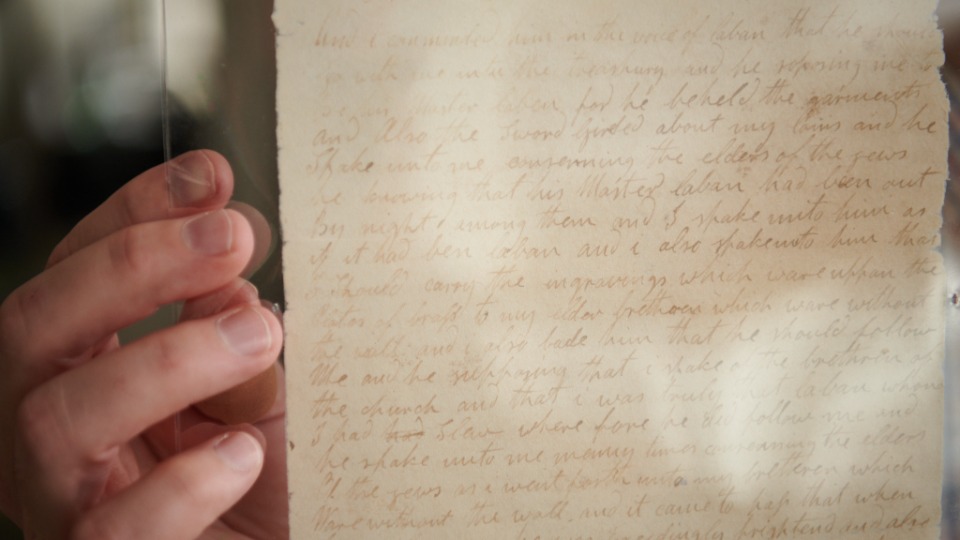 and i commanded him in the voice of laban that he should
go with me into the treasury and he suposing me to
be his Master laban for he beheld the garments
and Also the Sword girded about my loins and he
spake unto me conserning the elders of the jews
he knowing that his Master laban had been out
by night among them and I spake unto him as
if it had ben laban and i also spake unto him that
I Should carry the ingravings which ware uppon the
Plates of brass to my elder bretheren which ware without
the wall and i also bade him that he should follow
Me and he supposing that i spake of the bretheren of
the church and that i was truly that laban whom
I had had Slaw where fore he did follow me and
he spake unto me meany times conserning the elders
of the jews as i went forth unto my bretheren which
Ware without the wall and it came to pass that when
exceedingly frightend and also